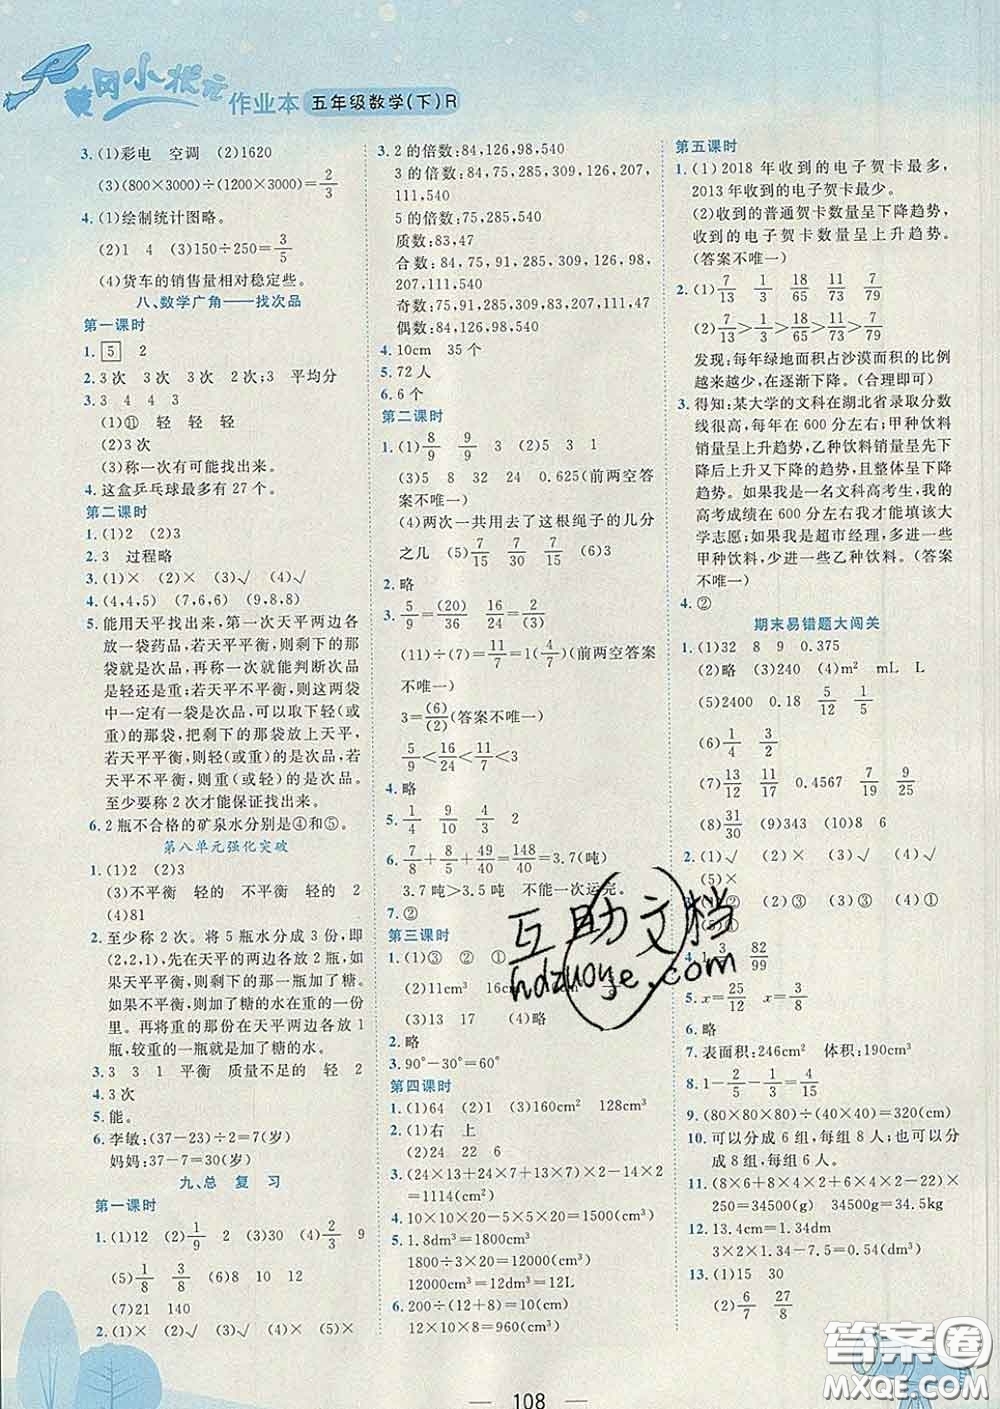 黄冈小状元
作业本 五年级数学(下)R
3.(1)彩电 空调 (2)1620
(3)(800×3000)÷(1200×3000)=2/3
4.(1)绘制统计图略。
(2)1 4 (3)150÷250=3/5
(4)货车的销售量相对稳定些。
八、数学广角——找次品
第一课时
1. 5 2
2.3次 3次 3次 2次;3 平均分
3.3 4 4 3
(1)⑪ 轻 轻 轻
(2)3次
(3)称一次有可能找出来。
4.这盒乒乓球最多有27个。
第二课时
1.(1)2 (2)3
2.3 过程略
3.(1)× (2)× (3)√ (4)√
4.(4,4,5) (7,6,6) (9,8,8)
5.能用天平找出来,第一次天平两边各
放一袋药品,若天平平衡,则剩下的那
袋就是次品,再称一次就能判断次品
是轻还是重;若天平不平衡,则这两袋
中一定有一袋是次品,拿下轻(或重)
的那袋,把剩下的那袋放上天平,
若天平平衡,则轻(或重)的是次品,若
天平不平衡,则重(或轻)的是次品。
至少要称2次才能保证找出来。
6.2瓶不合格的矿泉水分别是④和⑤。
第八单元强化突破
1.(1)2 (2)3
(3)不平衡 轻的 不平衡 轻的 2
(4)81
2.至少称2次。将5瓶水分成3份,即
(2,2,1),先在天平两边各放2瓶,如
果天平不平衡,则重的那一瓶加了糖;
如果平衡,则加了糖的水在重的一份
里。再将重的那份在天平两边各放1
瓶,较重的一瓶就是加了糖的水。
3.3 3 1 平衡 质量不足的 轻 2
4.3次
5.能。
6.李敏:(37-23)÷2=7(岁)
妈妈:37-7=30(岁)
九、总 复 习
第一课时
1.(1)12 (2)1/9 2 (3)30 (4)2/3 9
(5)1/8 3/8 (6)8 10 30
(7)21 140
2.(1)× (2)× (3)√ (4)√ (5)×
3.2的倍数:84,126,98,540
3的倍数:84,75,285,309,126,207,
111,540
5的倍数:75,285,540
质数:83,47
合数:84,75,91,285,309,126,207,
111,98,540
奇数:75,91,285,309,83,47,207,111
偶数:84,126,98,540
4.10cm 35个
5.72人
6.6个
第二课时
1.(1)8/9 9/9 3 (2)5 3 1
(3)5 8 32 24 0.625(前两空答
案不唯一)
(4)两次一共用去了这根绳子的几分
之几 (5)7/15 7/15 (6)3
2.略
3.5/9=(20)/36 16/24=2/(3)
(11)÷(7)=11/7=1(4/7)(前两空答案
不唯一)
3=(6)/(2)(答案不唯一)
5/9<16/24<11/7<3
4.略
5.1/4 9/10 4/9 2
6.7/8+5/8+49/40=148/40=3.7(吨)
3.7吨>3.5吨 不能一次运完。
7.②
第三课时
1.(1)③ ② ①
(2)11cm³ 16cm
(3)13 17 (4)略
2.略
3.90°-30°=60°
第四课时
1.(1)64 (2)1 (3)160cm² 128cm³
2.(1)右 上
(2)24 22 6
3.(24×13+24×7+13×7)×2-24×13
=1114(cm²)
4.10×10×20-5×5×20=1500(cm³)
5.1.8dm³=1800cm³
1800÷12÷12=12.5(cm)
12000cm³=12dm³=12L
6.200÷(12+8)=10(cm)
12×10×8=960(cm³)
第五课时
1.(1)2018年收到的电子贺卡最多,
2013年收到的电子贺卡最少。
(2)收到的普通贺卡数量呈下降趋势,
收到的电子贺卡数量呈上升趋势。
(答案不唯一)
2.(1)7/13 1/3 18/65 11/73 7/79
(2)7/13>1/3>18/65>11/73>7/79
发现:每年绿地面积占沙漠面积的比例
越来越少,在逐渐下降。(合理即可)
3.得知:某大学的文科在湖北省录取分数
线很高,每年在600分左右;甲种饮料
销量呈上升趋势,乙种饮料销量呈先下
降后上升又下降的趋势,且整体呈下降
趋势。如果我是一名文科高考生,我的
高考成绩在600分左右我才能填该大
学志愿;如果我是超市经理,多进一些
甲种饮料,少进一些乙种饮料。(答案
不唯一)
4.②
期末易错题大闯关
1.(1)32 8 9 0.375
(2)略 (3)240 (4)m² mL L
(5)2400 0.18 5/12 1/5
(6)1/4 3/2
(7)13/12 17/12 0.4567 7/20 9/25
(8)31/30 (9)120 (10)8
2.(1)√ (2)× (3)√ (4)√
(5)×
(3)④ (4)①
4. 82/99
5.x=25/12 x=3/8
6.略
7.表面积:246cm² 体积:190cm³
8.1-2/5-1/3=4/15
9.(80×80×80)÷(40×40)=320(cm)
10.可以分成6组,每组8人;也可以分
成8组,每组6人。
11.(8×6+8×4×2+6×4×2-22)×
250=34500(g) 34500g=34.5kg
12.13.4cm=1.34dm
3×2×1.34-7.5=0.54(dm³)
13.(1)15 30
(2)6/7 27/8
互助文档
hdzuoye.com
108
答案圈
MXQE.COM